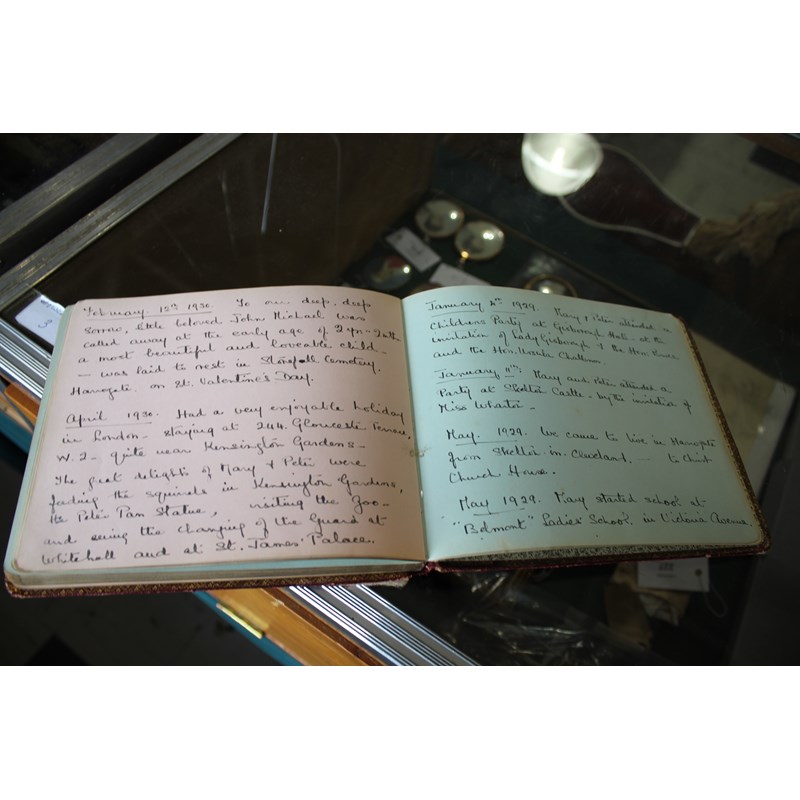 February 12th 1930. To our deep, deep
sorrow, little beloved John Michael was
called away at the early age of 2 yrs-
a most beautiful and loveable child-
- was laid to rest in Stonefall Cemetery,
Harrogate. on St. Valentine's Day.
April 1930. Had a very enjoyable holiday
in London- staying at 244 Gloucester Terrace,
W.2- quite near Kensington Gardens-
The great delights of Mary & Peter were
feeding the squirrels in Kensington Gardens,
the Peter Pan Statue, visiting the Zoo-
and seeing the changing of the Guard at
Whitehall and at St. James' Palace.
January 1929. Mary & Peter attended a
Childrens Party at Gisborough Hall- at the
invitation of Lady Gisborough & the Hon.
and the Hon. Chaloner.
January 11th: Mary and Peter attended a
Party at Skelton Castle- by the invitation of
Miss Wharton-
May. 1929. We came to live in Harrogate
from Skelton in Cleveland, - to Christ
Church House.
May 1929. Mary started school at
"Belmont" Ladies School, in Victoria Avenue.
3